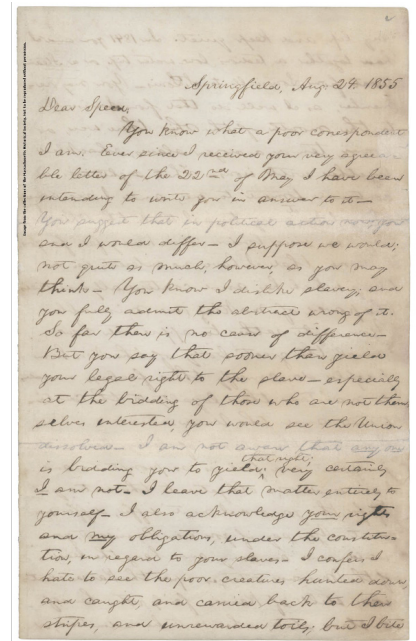 Image from the collections of the Massachusetts Historical Society. Not to be reproduced without permission.
Springfield, Aug. 24. 1855
Dear Speed,
You know what a poor correspondent
I am. Ever since I received your very agreea-
ble letter of the 22nd of May I have been
intending to write you in answer to it—
You suggest that in political action now you
and I would differ— I suppose we would;
not quite as much, however, as you may
think— You know I dislike slavery; and
you fully admit the abstract wrong of it.
So far there is no cause of difference—
But you say that sooner than yield
your legal right to the slave— especially
at the bidding of those who are not them-
selves interested, you would see the Union
dissolved— I am not aware that any one
is bidding you to yield that right; very certainly
I am not— I leave that matter entirely to
yourself— I also acknowledge your rights
and my obligations, under the constitu-
tion, in regard to your slaves— I confess I
hate to see the poor creatures hunted down,
and caught, and carried back to their
stripes, and unrewarded toils; but I bite